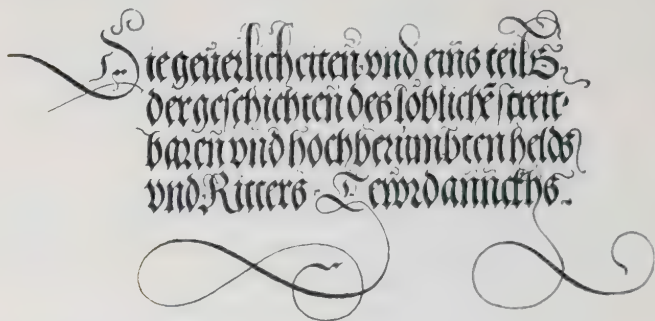 Die geũerlicheiten vnd eins teils
der geschichten des loblichẽ streit⸗
baren vnd hochberümbten helds
vnd Ritters Tewrdannckhs.